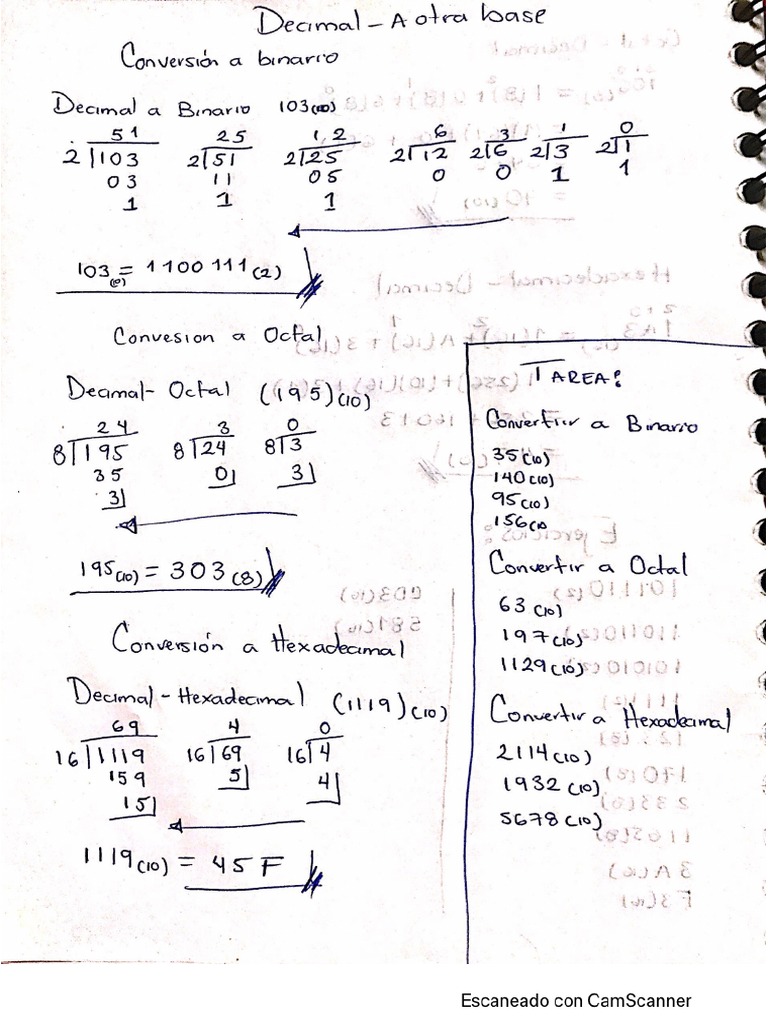 Decimal - A otra base
Conversión a binario
Decimal a Binario 103(10)
51 25 1,2 6 3 1 0
2 103 2 51 2 25 2 12 2 6 2 3 2 1
03 11 05 0 0 1 1
1 1 1
103(10) = 1100 111(2)
Convesion a Octal
Decimal - Octal (195)(10)
24 3 0
8 195 8 24 8 3
35 0 3
3
195(10) = 303(8)
Conversión a Hexadecimal
Decimal - Hexadecimal (1119)(10)
69 4 0
16 1119 16 69 16 4
159 5 4
15
1119(10) = 45F
TAREA:
Convertir a Binario
35(10)
140(10)
95(10)
156(10
Convertir a Octal
63(10)
197(10)
1129(10)
Convertir a Hexadecimal
2114(10)
1932(10)
5678(10)
Escaneado con CamScanner